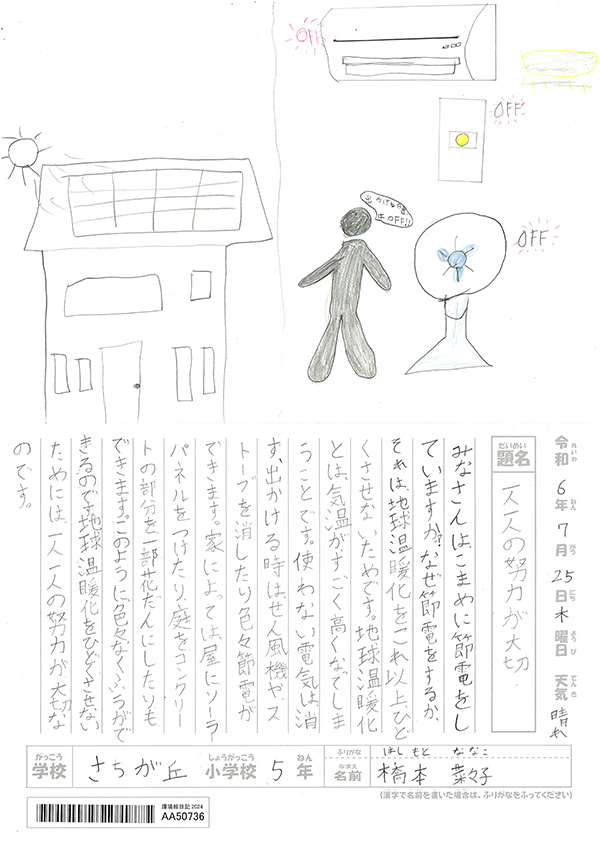 OFF
OFF
出かける時
はOFF!!
OFF
れいわ
令和6年7月25日木曜日 天気 晴れ
ねん がつ にち ようび てんき
だいめい
題名
一人一人の努力が大切
みなさんは、こまめに節電をし
ていますか?なぜ節電をするか、
それは、地球温暖化をこれ以上、ひど
くさせないためです。地球温暖化
とは、気温がすごく高くなってしま
うことです。使わない電気は、消
す、出かける時は、せん風機やス
トーブを消したり、色々節電が
できます。家によっては、屋にソーラー
パネルをつけたり、庭をコンクリー
トの部分を一部花だんにしたりも
できます。このように、色々なくふうがで
きるのです。地球温暖化をひどくさせない
ためには、一人一人の努力が大切な
のです。
がっこう
学校
さちが丘
しょうがっこう
小学校
5
ねん
年
ふりがな
はしもと ななこ
なまえ
名前
橋本 菜々子
(漢字で名前を書いた場合は、ふりがなをふってください)
環境絵日記2024
AA50736